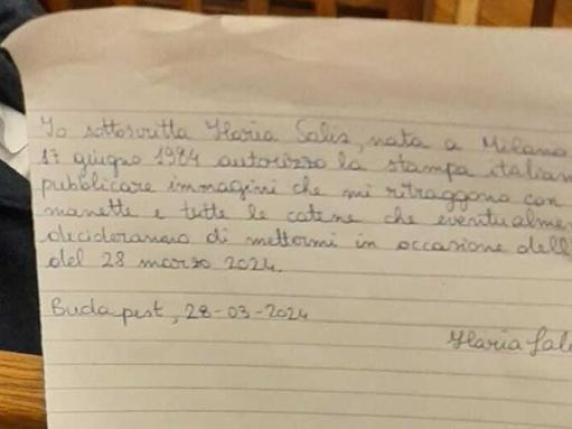 Io sottoscritta Ilaria Salis, nata a Milano
17 giugno 1984 autorizzo la stampa italian
pubblicare immagini che mi ritraggono con
manette e tutte le catene che eventualme
decideranno di mettermi in occasione dell
del 28 marzo 2024.
Budapest, 28-03-2024
Ilaria Sali